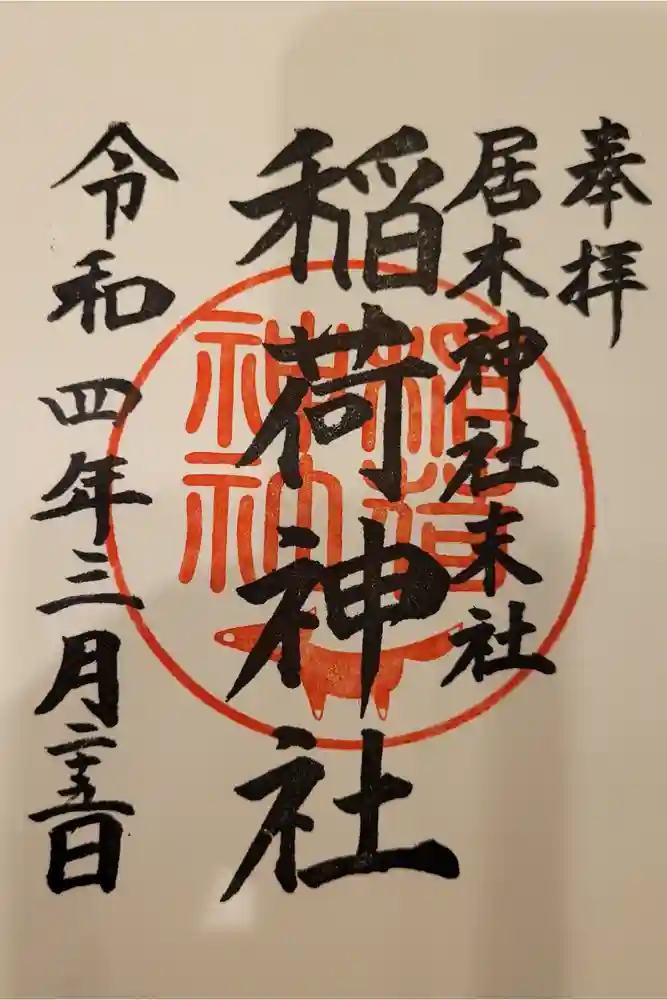 奉拝
居木神社末社
稲荷神社
令和四年三月二十五日